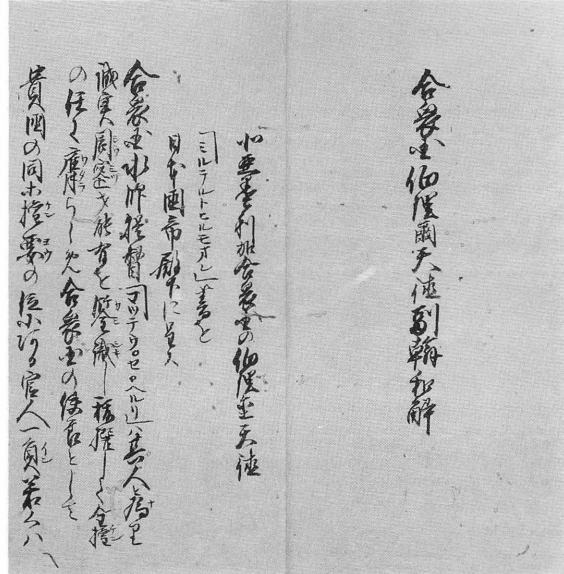 合衆国伯理爾天徳副翰和解
北亜墨利加合衆国の伯理璽天徳
「ミルラルトヒルモオレ」書を
日本国帝殿下に呈す
合衆国水師提督「マツテウセペルリ」ハ其人と為り
誠実周密才能有を鑑識し移擢して全権
の任に膺らしめ合衆国の使臣として
貴国の同等権要の位にある官人一員若くハ